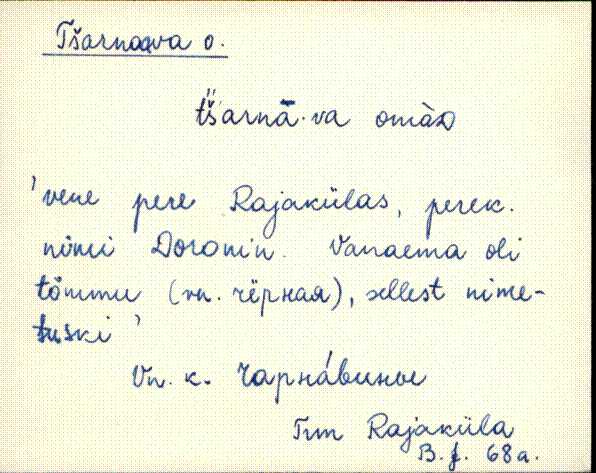 Tšarnaava o.
tš̆arnā·va omàD
'vene pere Rajakülas, perek.
nimi Doronin. Vanaema oli
tõmmu (vn. чёрная), sellest nime-
tuski'
Vn. k. Чарнáвины
Trm Rajaküla
B. f. 68a.